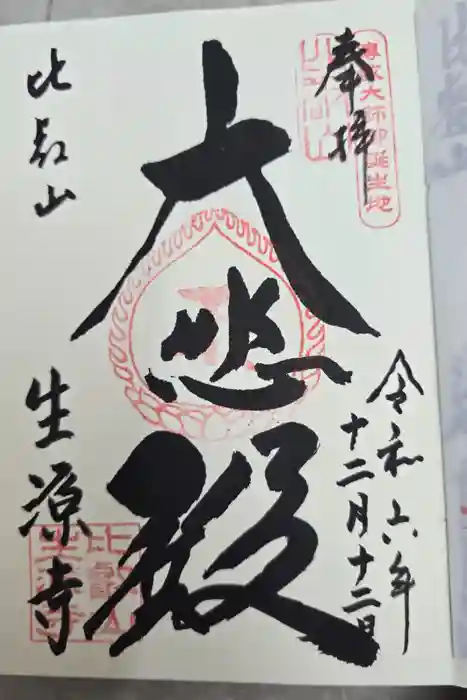 奉拝
傳教大師御誕生地
令和六年
十二月十二日
大悲殿
比叡山
生源寺